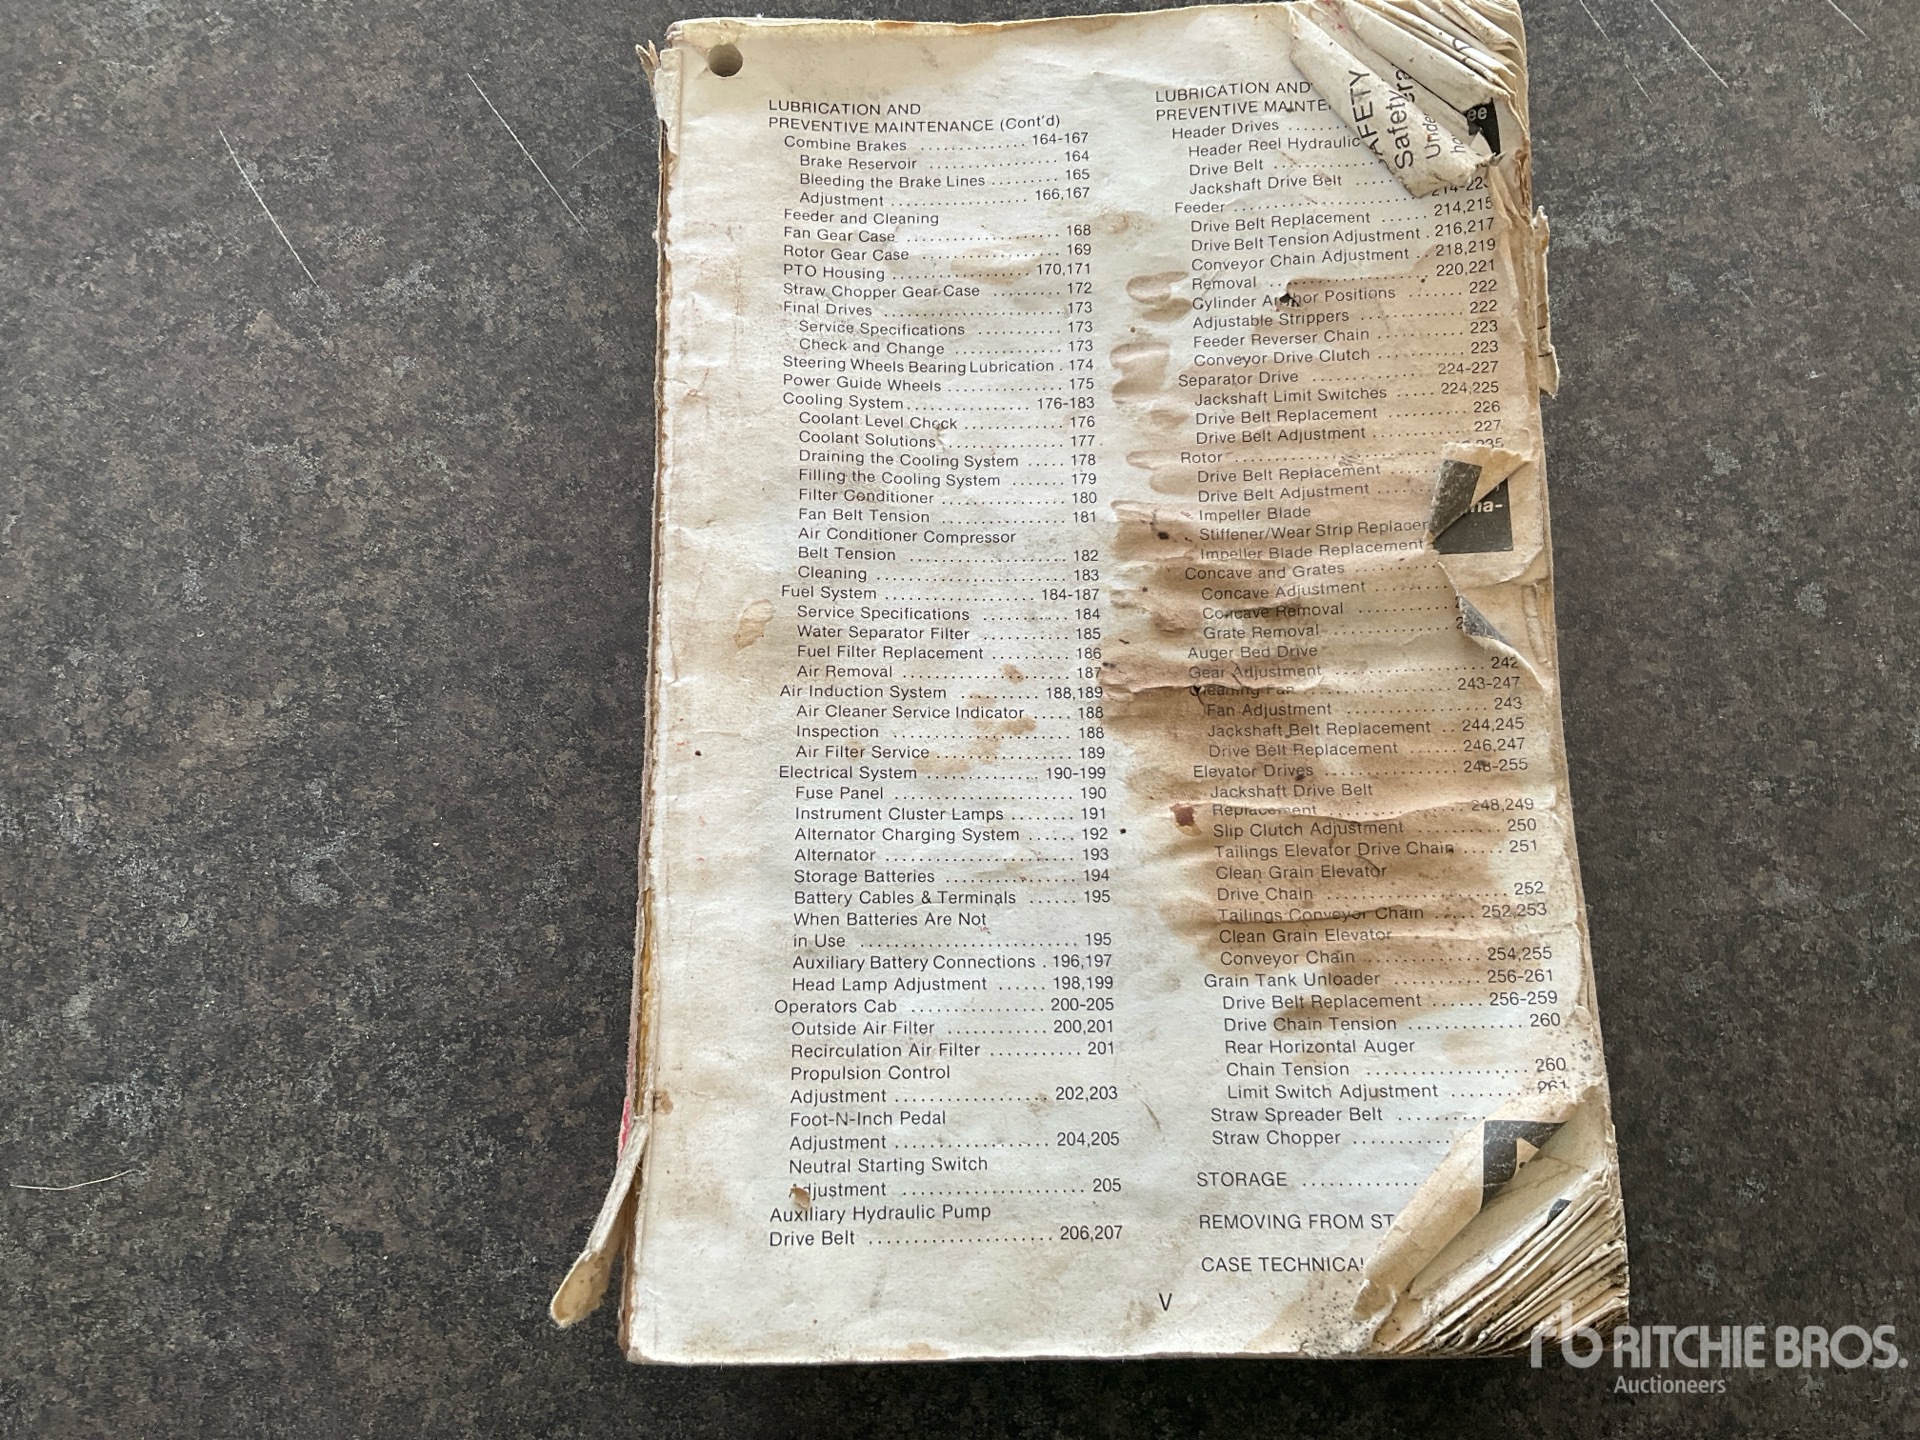 LUBRICATION AND
PREVENTIVE MAINTENANCE (Cont'd)
Combine Brakes .............. 164-167
Brake Reservoir .................. 164
Bleeding the Brake Lines ......... 165
Adjustment .................. 166,167
Feeder and Cleaning
Fan Gear Case .................... 168
Rotor Gear Case .................. 169
PTO Housing ................. 170,171
Straw Chopper Gear Case .......... 172
Final Drives ..................... 173
Service Specifications ........... 173
Check and Change ................. 173
Steering Wheels Bearing Lubrication . 174
Power Guide Wheels ............... 175
Cooling System ............... 176-183
Coolant Level Check .............. 176
Coolant Solutions ................ 177
Draining the Cooling System ..... 178
Filling the Cooling System ....... 179
Filter Conditioner ............... 180
Fan Belt Tension ................. 181
Air Conditioner Compressor
Belt Tension ..................... 182
Cleaning ......................... 183
Fuel System .................. 184-187
Service Specifications ........... 184
Water Separator Filter ........... 185
Fuel Filter Replacement .......... 186
Air Removal ...................... 187
Air Induction System ......... 188,189
Air Cleaner Service Indicator ..... 188
Inspection ....................... 188
Air Filter Service ............... 189
Electrical System ............ 190-199
Fuse Panel ....................... 190
Instrument Cluster Lamps ......... 191
Alternator Charging System ...... 192
Alternator ....................... 193
Storage Batteries ................ 194
Battery Cables & Terminals ...... 195
When Batteries Are Not
in Use ........................... 195
Auxiliary Battery Connections . 196,197
Head Lamp Adjustment ...... 198,199
Operators Cab ................ 200-205
Outside Air Filter ........... 200,201
Recirculation Air Filter ........... 201
Propulsion Control
Adjustment ................... 202,203
Foot-N-Inch Pedal
Adjustment ................... 204,205
Neutral Starting Switch
Adjustment ....................... 205
Auxiliary Hydraulic Pump
Drive Belt ................... 206,207
LUBRICATION AND
PREVENTIVE MAINTE
Header Drives
Header Reel Hydraulic
Drive Belt
Jackshaft Drive Belt
Feeder ........ 214-223
Drive Belt Replacement ...... 214,215
Drive Belt Tension Adjustment . 216,217
Conveyor Chain Adjustment .. 218,219
Removal .................. 220,221
Cylinder Anchor Positions ....... 222
Adjustable Strippers ............. 222
Feeder Reverser Chain ........... 223
Conveyor Drive Clutch ........... 223
Separator Drive .............. 224-227
Jackshaft Limit Switches ..... 224,225
Drive Belt Replacement .......... 226
Drive Belt Adjustment ........... 227
Rotor .................. 235
Drive Belt Replacement
Drive Belt Adjustment
Impeller Blade
Stiffener/Wear Strip Replacem
Impeller Blade Replacement
Concave and Grates
Concave Adjustment
Concave Removal
Grate Removal
Auger Bed Drive
Gear Adjustment .................. 242
Cleaning Fan ................. 243-247
Fan Adjustment ................... 243
Jackshaft Belt Replacement .. 244,245
Drive Belt Replacement ...... 246,247
Elevator Drives .............. 248-255
Jackshaft Drive Belt
Replacement .................. 248,249
Slip Clutch Adjustment ........... 250
Tailings Elevator Drive Chain ..... 251
Clean Grain Elevator
Drive Chain ...................... 252
Tailings Conveyor Chain ..... 252,253
Clean Grain Elevator
Conveyor Chain ............... 254,255
Grain Tank Unloader .......... 256-261
Drive Belt Replacement ...... 256-259
Drive Chain Tension .............. 260
Rear Horizontal Auger
Chain Tension .................... 260
Limit Switch Adjustment ......... 261
Straw Spreader Belt
Straw Chopper
STORAGE
REMOVING FROM ST
CASE TECHNICAL
V
AFETY
Safety
Unde
ee
na-
rb RITCHIE BROS.
Auctioneers